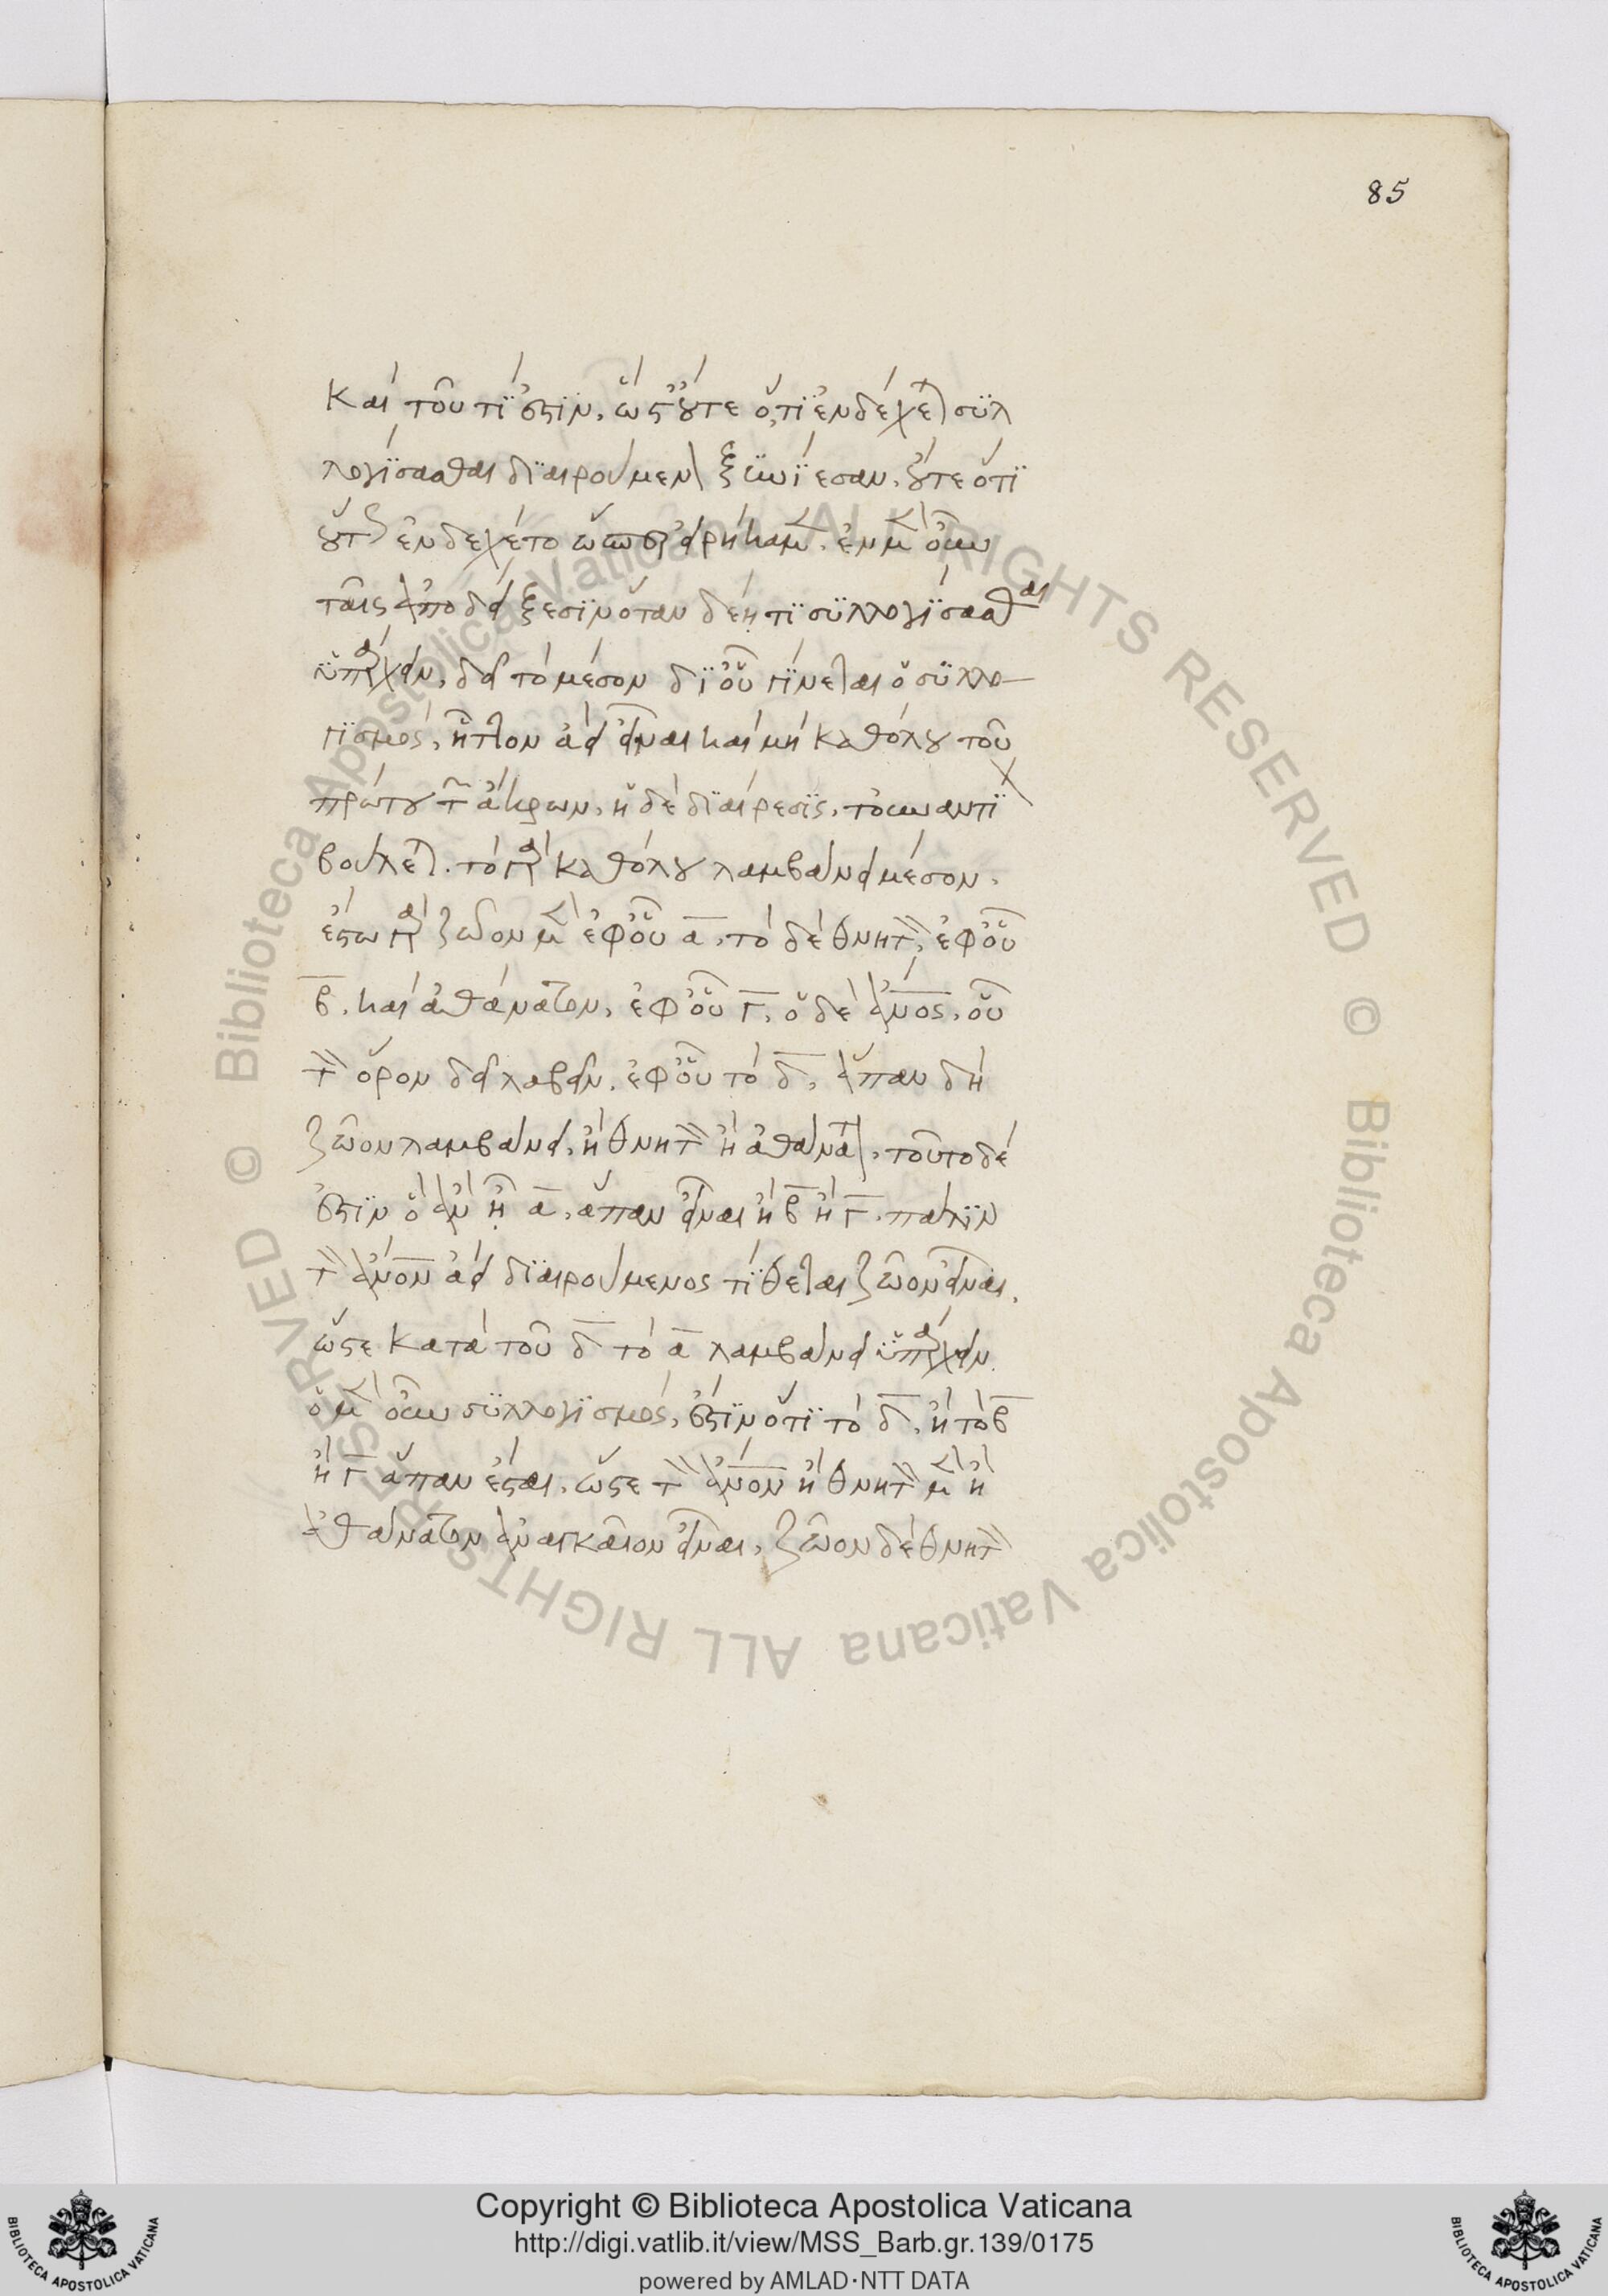 85
καὶ τοῦ τί ἐστιν, ὥστ' οὔτε ὅ,τι ἐνδέχεται συλ
λογίσασθαι διαιρούμενοι ξυνίεσαν, οὔτε ὅτι
οὕτως ἐνδέχετο ὥσπερ εἰρήκαμεν. ἐν μὲν οὖν
ταῖς ἀποδείξεσιν ὅταν δέῃ τι συλλογίσασθαι
ὑπάρχειν, δεῖ τὸ μέσον δι' οὗ γίνεται ὁ συλλο
γισμός, ἧττον ἀεὶ εἶναι καὶ μὴ καθόλου τοῦ
πρώτου τῶν ἄκρων, ἡ δὲ διαίρεσις, τοὐναντίον
βούλεται. τὸ γὰρ καθόλου λαμβάνει μέσον.
ἔστω γὰρ ζῶον μὲν ἐφ' οὗ α, τὸ δὲ θνητὸν, ἐφ' οὗ
β, καὶ ἀθάνατον, ἐφ' οὗ γ, ὁ δὲ ἄνος, οὗ
τὸν ὅρον δεῖ λαβεῖν, ἐφ' οὗ τὸ δ, ἅπαν δὴ
ζῶον λαμβάνει, ἢ θνητὸν ἢ ἀθάνατον, τοῦτο δέ
ἐστιν ὃ ἂν ᾖ α, ἅπαν εἶναι ἢ β ἢ γ. πάλιν
τὸν ἄνον ἀεὶ διαιρούμενος τίθεται ζῶον εἶναι.
ὥστε κατὰ τοῦ δ τὸ α λαμβάνει ὑπάρχειν.
ὁ μὲν οὖν συλλογισμός, ἐστιν ὅτι τὸ δ, ἢ τὸ β
ἢ γ ἅπαν ἔσται, ὥστε τὸν ἄνον ἢ θνητὸν μὲν ἢ
ἀθάνατον ἀναγκαῖον εἶναι, ζῶον δὲ θνητὸν
Copyright © Biblioteca Apostolica Vaticana
http://digi.vatlib.it/view/MSS_Barb.gr.139/0175
powered by AMLAD·NTT DATA
BIBLIOTECA APOSTOLICA VATICANA
BIBLIOTECA APOSTOLICA VATICANA
© Biblioteca Apostolica Vaticana ALL RIGHTS RESERVED © Biblioteca Apostolica Vaticana ALL RIGHTS RESERVED